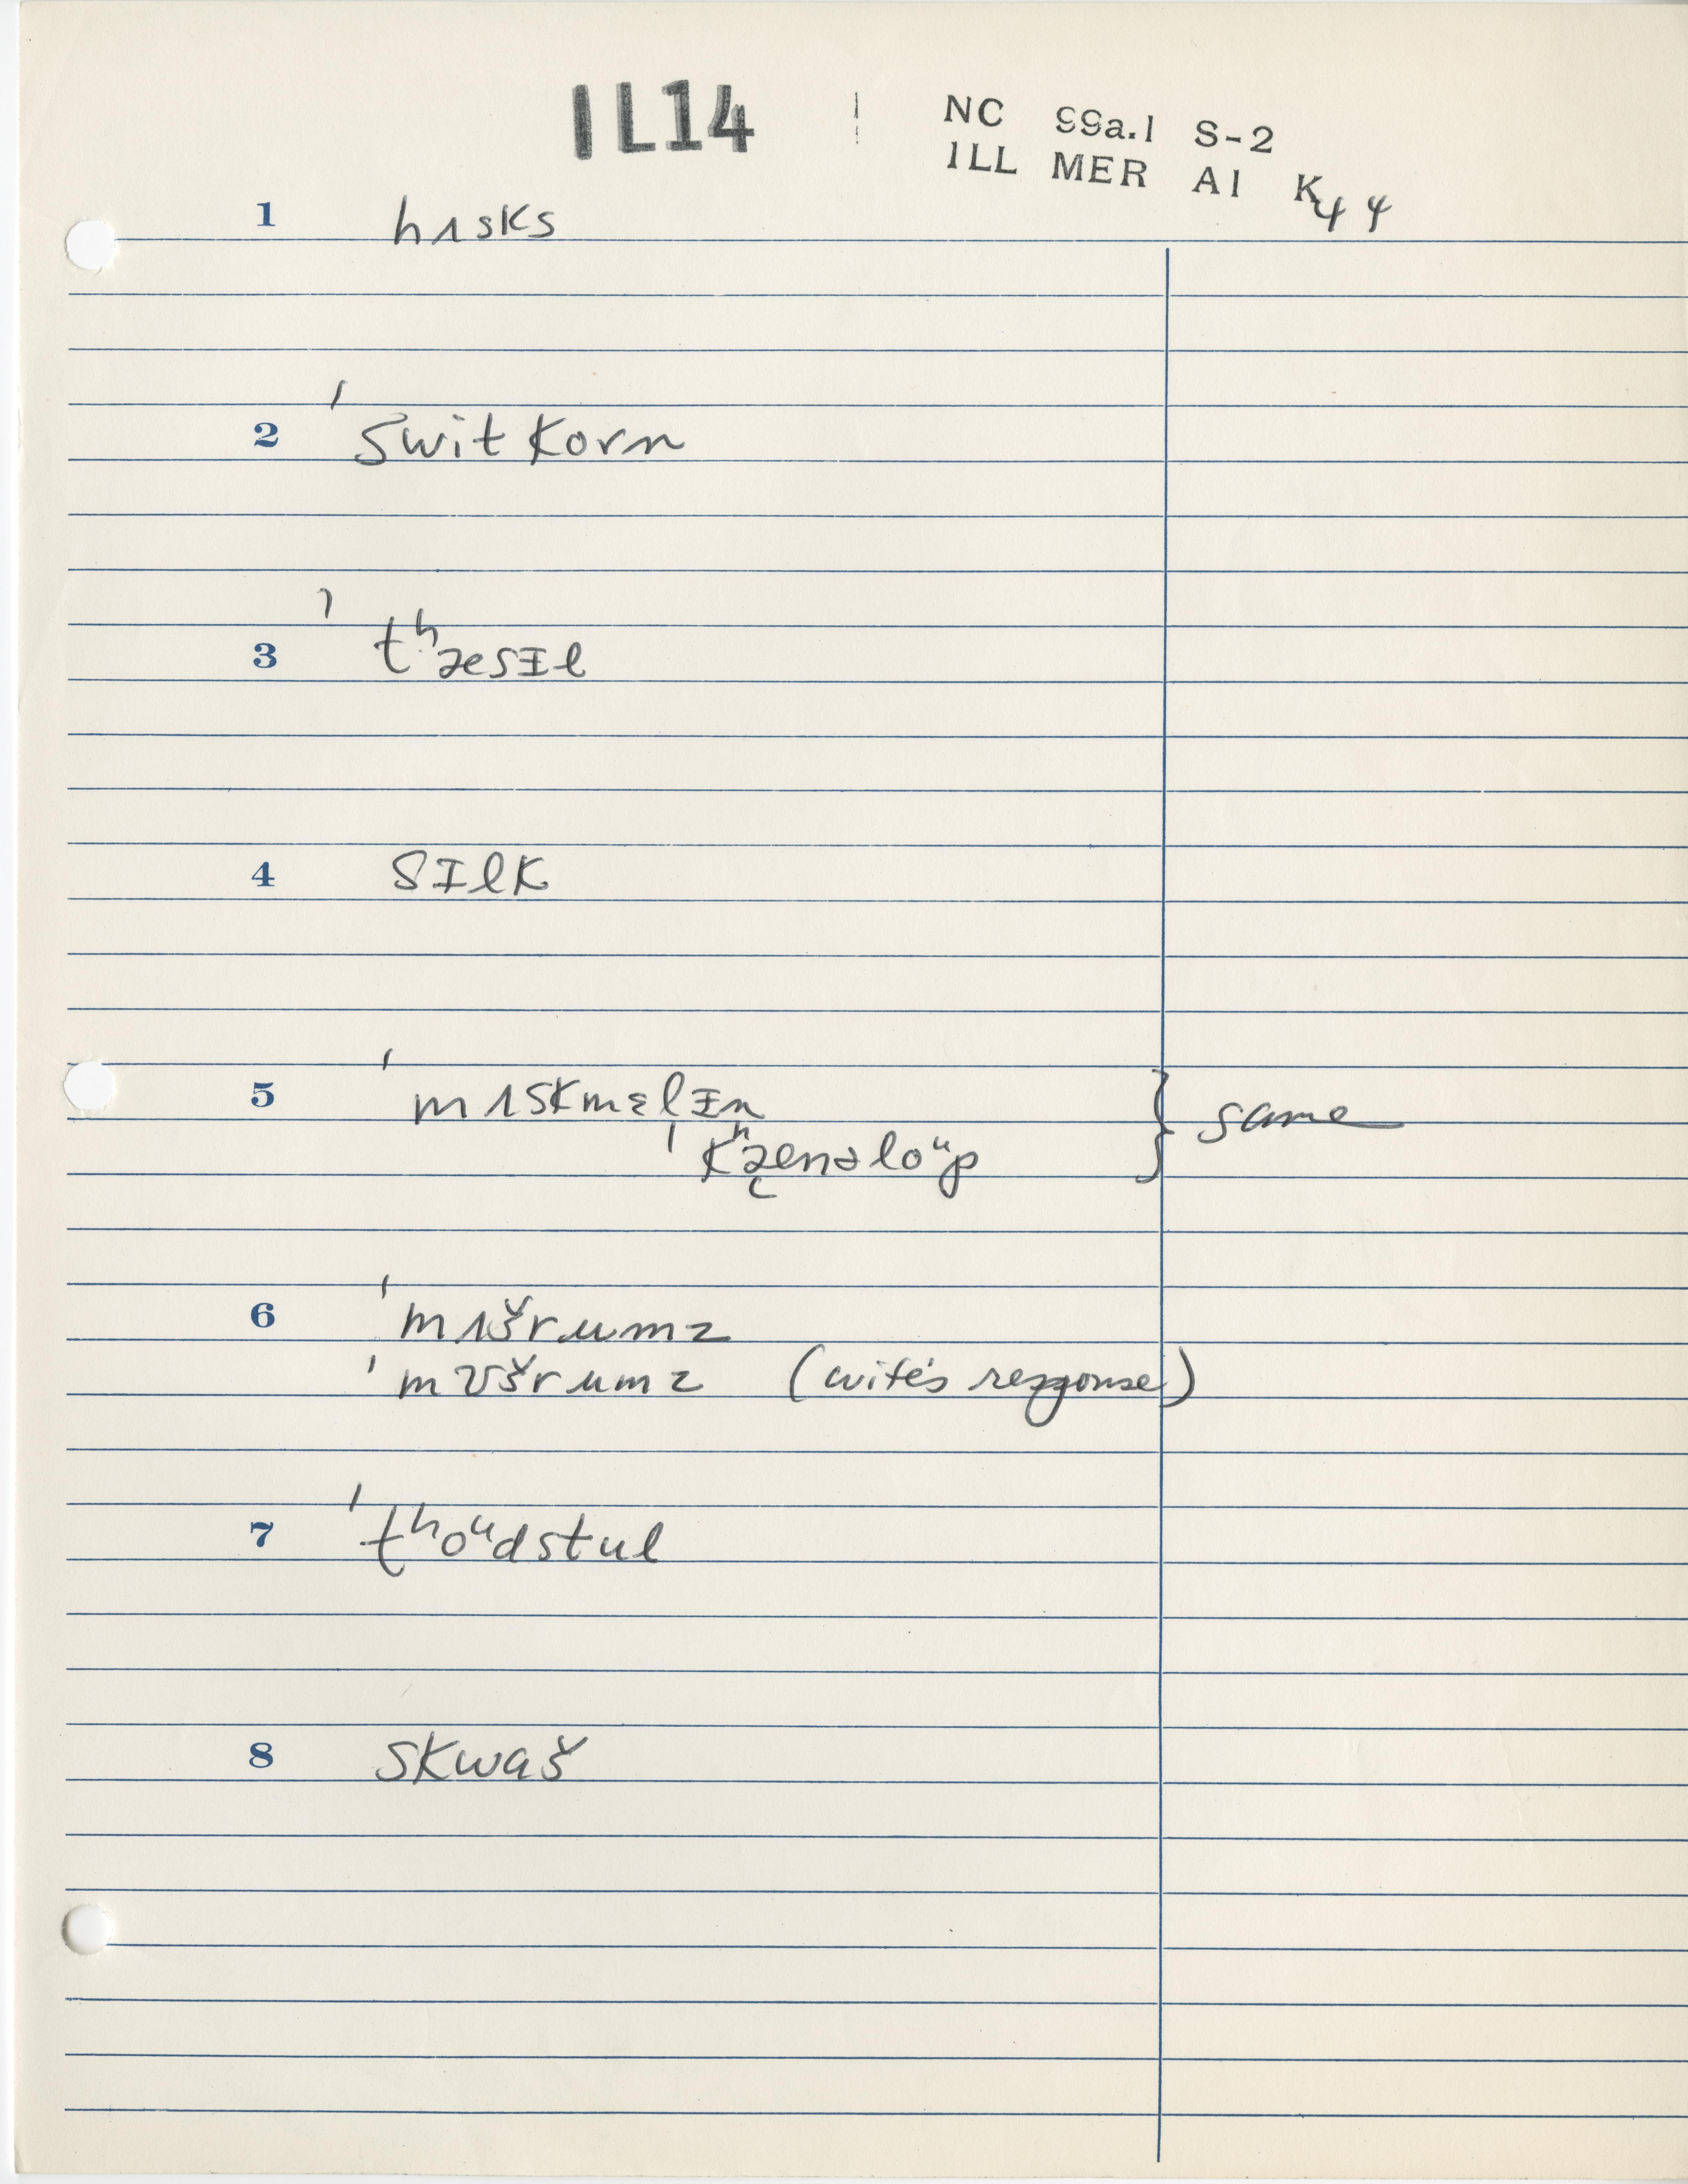 IL14
NC 99a.1 S-2
ILL MER A1 K44
1 hʌsks
2 ˈswit korn
3 ˈtʰæsɪl
4 sɪlk
5 ˈmʌskmɛlɪn
ˈkʰæ̨nəloᵘp } same
6 ˈmʌšrumz
ˈmʊšrumz (wife's response)
7 ˈtʰoᵘdstul
8 skwaš